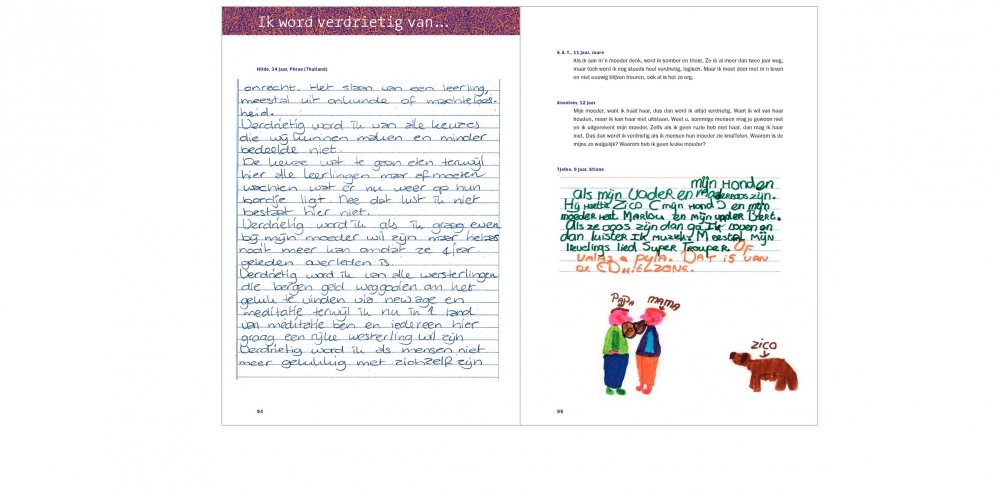 Ik word verdrietig van...
Hilde, 34 jaar, Phrae (Thailand)
onrecht. Het slaan van een leerling,
meestal uit onkunde of machteloos-
heid.
Verdrietig word ik van alle keuzes
die wij kunnen maken en minder
bedeelde niet.
De keuze wat te gaan eten terwijl
hier alle leerlingen maar af moeten
wachten wat er nu weer op hun
bordje ligt. Nee dat lust ik niet
bestaat hier niet.
Verdrietig word ik als ik graag even
bij mijn moeder wil zijn maar helaas
nooit meer kan omdat ze 4 jaar
geleden overleden is.
Verdrietig word ik van alle westerlingen
die bergen geld weggooien om het
geluk te vinden via new age en
meditatie terwijl ik nu in 1 land
van meditatie ben en iedereen hier
graag een rijke westerling wil zijn
Verdrietig word ik als mensen niet
meer gelukkig met zichzelf zijn
94
S.A.T., 11 jaar, Joure
Als ik aan m'n moeder denk, word ik somber en triest. Ze is al meer dan twee jaar weg,
maar toch word ik nog steeds heel verdrietig, logisch. Maar ik moet door met m'n leven
en niet eeuwig blijven treuren, ook al is het zo erg.
Anoniem, 12 jaar
Mijn moeder, want ik haat haar, dus dan word ik altijd verdrietig. Want ik wil van haar
houden, maar ik kan haar niet uitstaan. Weet u, sommige mensen mag je gewoon niet
en ik uitgerekent mijn moeder. Zelfs als ik geen ruzie heb met haar, dan mag ik haar
niet. Dus dan wordt ik verdrietig als ik mensen hun moeder zie knuffelen. Waarom is de
mijne zo walgelijk? Waarom heb ik geen leuke moeder?
Tjelke, 9 jaar, Stiens
mijn Honden
als mijn Vader en moeder boos zijn.
Hij heette Zico (mijn hond) en mijn
moeder heet Marlou en mijn vader Bert.
Als ze boos zijn dan ga ik boven en
dan luister ik muziek. Meestal mijn
levelings lied Super Trouper. Of
DAT is VAN
de
PAPA MAMA
Zico
95